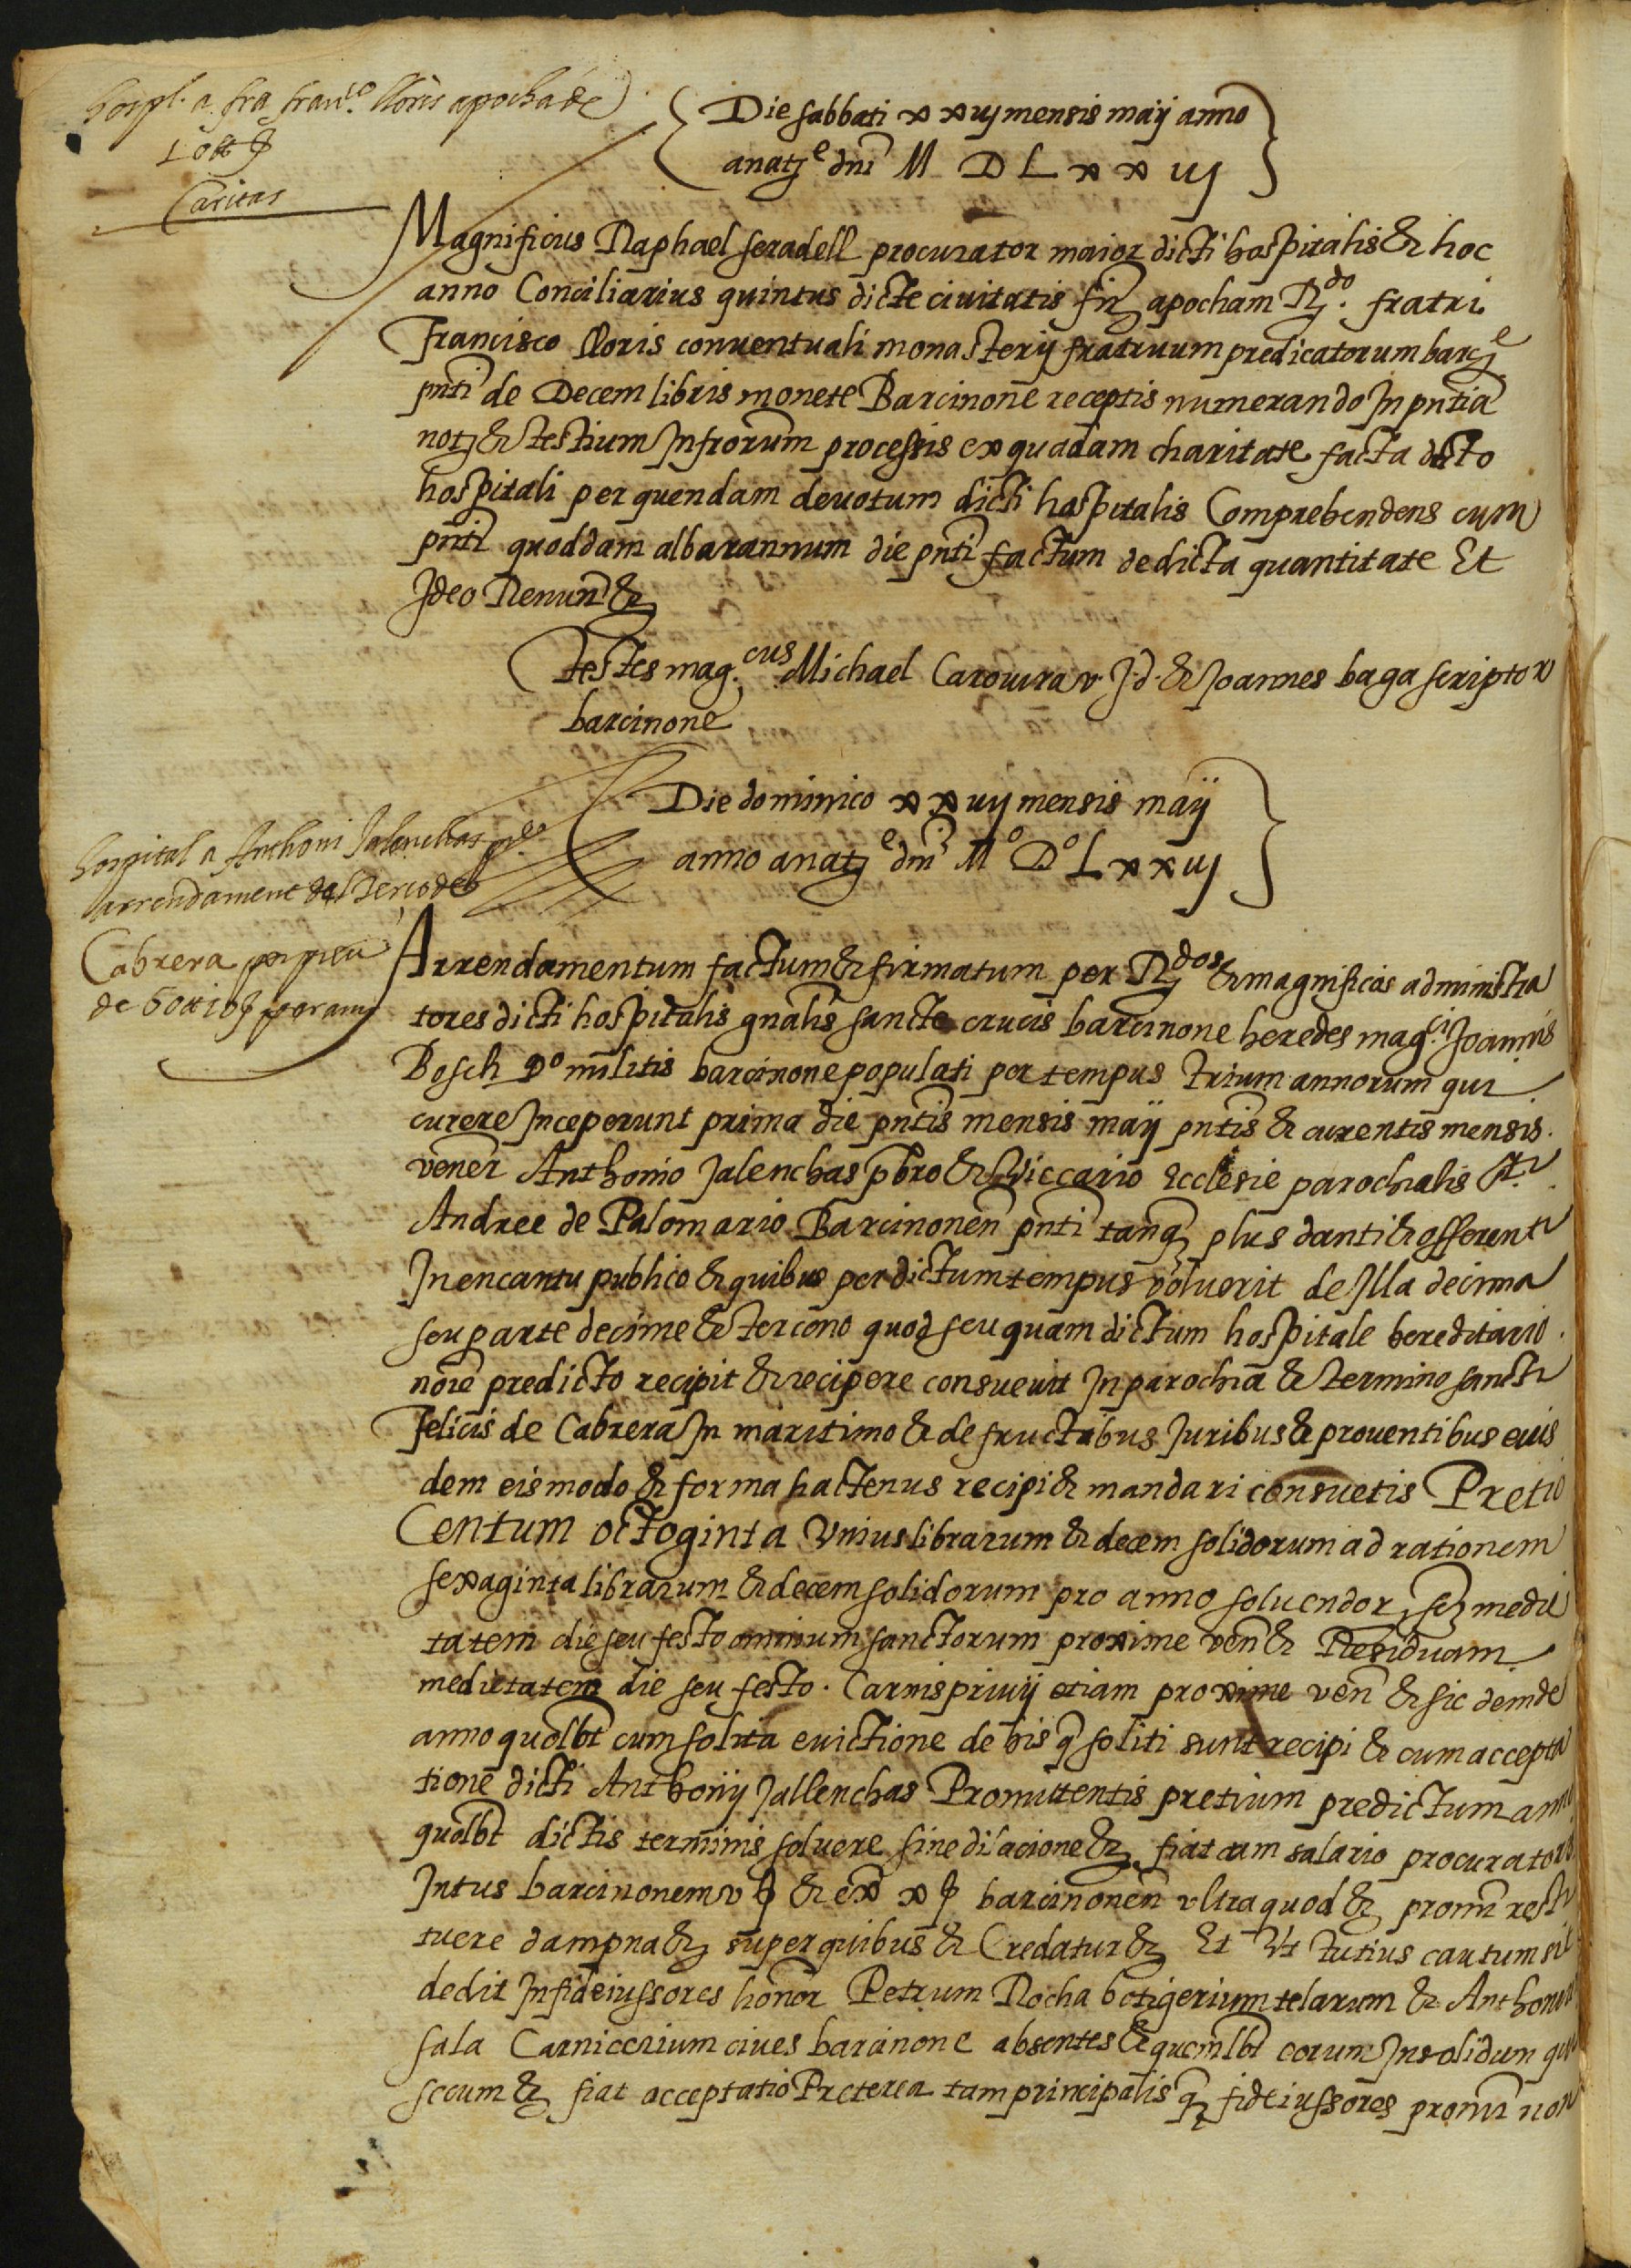 hospl. a fra franco. lloris apocha de
10 ll ß
Caritas
Die sabbati xxvj mensis maij anno
a natj.e dnī M D L xx vj
Magnificus Raphael seradell procurator maior dicti hospitalis & hoc
anno Conciliarius quintus dicte ciuitatis fir apocham R.do fratri
Francisco lloris conuentuali monasterij fratruum predicatorum barc.e
pnti de Decem libris monete Barcinone receptis numerando In pntia
notj & testium Infrorum processis ex quadam charitate facta dicto
hospitali per quendam deuotum dicti hospitalis Comprehendens cum
pnti quoddam albarannum die pnti factum de dicta quantitate Et
Ideo Renun &
testes mag.cus Michael Carouira v. J. d. & Joannes baga scriptor
barcinone
Die dominico xxvij mensis maij
anno a natj.e dnī Mo Do L xx vj
hospital a Anthoni Jalenchas
arrendament del Terç o de
Cabrera per preu
de 60 ll 10 ß per any
Arrendamentum factum & firmatum per R.dos & magnificos administra
tores dicti hospitalis gnalis sancte crucis barcinone heredes mag.ci Joannis
Bosch qo militis barcinone populati per tempus trium annorum qui
curere Inceperunt prima die pntis mensis maij pntis & curentis mensis.
vener Anthonio Jalenchas pbro & viccario Ecclesie parochialis Sti
Andree de Palomario Barcinonen pnti tanq plus danti & offerenti
In encantu publico & quibus per dictum tempus voluerit de Illa decima
seu parte decime & terceno quod seu quam dictum hospitale hereditario.
noie predicto recipit & recipere consueuit In parochia & termino sancti
Felicis de Cabrera In maritimo & de fructibus Juribus & prouentibus eius
dem eis modo & forma hactenus recipi & mandari consuetis Pretio
Centum octoginta Vnius librarum & decem solidorum ad rationem
sexaginta librarum & decem solidorum pro anno soluendor sez medie
tatem die seu festo omnium sanctorum proxime ven & Residuam
medietatem die seu festo. Carnispriuij etiam proxime ven & sic deinde
anno quolbt cum solita euictione de his q soliti sunt recipi & cum accepta
tione dicti Anthonij Jallenchas Promittentis pretium predictum anno
quolbt dictis terminis soluere sine dilacione & fiat cum salario procuratori
Intus barcinonem v ß & ex x ß barcinonen vltra quod & promi resti
tuere dampna & super quibus & Credatur & Et Vt tutius cautum sit
dedit In fideiussores honor Petrum Rocha botigerium telarum & Anthoniu
sala Carnicerium ciues barcinone absentes & quemlbt eorum In solidum qui
secum & fiat acceptatio Preterea tam principalis q fideiussores promi non